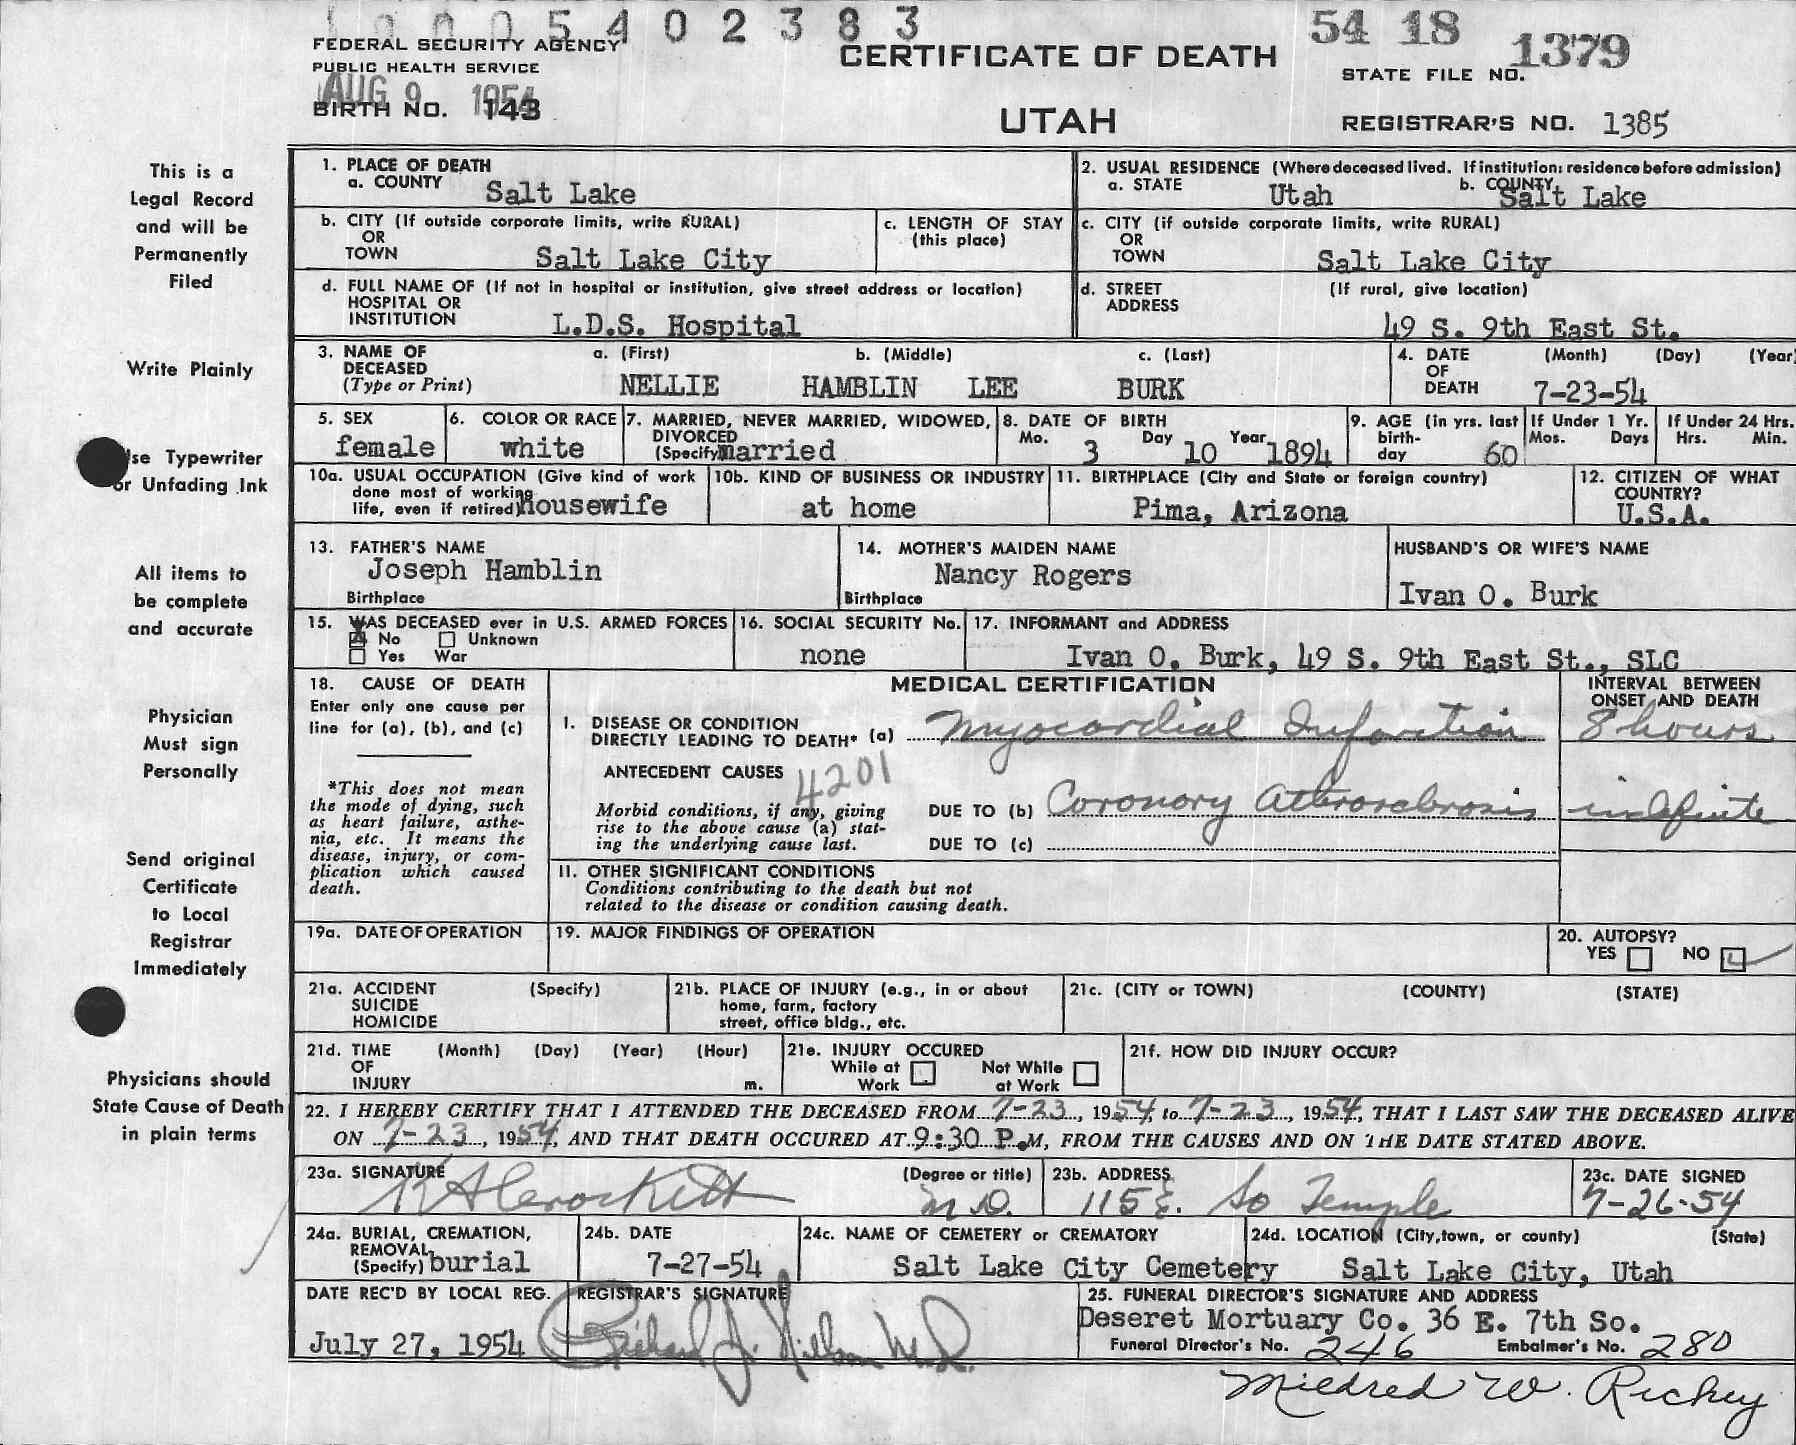 5 4 0 2 3 8 3
FEDERAL SECURITY AGENCY
PUBLIC HEALTH SERVICE
AUG 9 1954
BIRTH NO. 143
CERTIFICATE OF DEATH
UTAH
54 18 1379
STATE FILE NO.
REGISTRAR'S NO. 1385
This is a
Legal Record
and will be
Permanently
Filed
Write Plainly
se Typewriter
or Unfading Ink
All items to
be complete
and accurate
Physician
Must sign
Personally
Send original
Certificate
to Local
Registrar
Immediately
Physicians should
State Cause of Death
in plain terms
1. PLACE OF DEATH
a. COUNTY Salt Lake
2. USUAL RESIDENCE (Where deceased lived. If institution: residence before admission)
a. STATE Utah b. COUNTY Salt Lake
b. CITY (If outside corporate limits, write RURAL)
OR
TOWN Salt Lake City
c. LENGTH OF STAY
(this place)
c. CITY (if outside corporate limits, write RURAL)
OR
TOWN Salt Lake City
d. FULL NAME OF (If not in hospital or institution, give street address or location)
HOSPITAL OR
INSTITUTION L.D.S. Hospital
d. STREET (If rural, give location)
ADDRESS
49 S. 9th East St.
3. NAME OF a. (First) b. (Middle) c. (Last)
DECEASED
(Type or Print) NELLIE HAMBLIN LEE BURK
4. DATE (Month) (Day) (Year)
OF
DEATH 7-23-54
5. SEX
female
6. COLOR OR RACE
white
7. MARRIED, NEVER MARRIED, WIDOWED,
DIVORCED
(Specify) married
8. DATE OF BIRTH
Mo. 3 Day 10 Year 1894
9. AGE (in yrs. last
birth-
day 60
If Under 1 Yr.
Mos. Days
If Under 24 Hrs.
Hrs. Min.
10a. USUAL OCCUPATION (Give kind of work
done most of working
life, even if retired) housewife
10b. KIND OF BUSINESS OR INDUSTRY
at home
11. BIRTHPLACE (City and State or foreign country)
Pima, Arizona
12. CITIZEN OF WHAT
COUNTRY?
U.S.A.
13. FATHER'S NAME
Joseph Hamblin
Birthplace
14. MOTHER'S MAIDEN NAME
Nancy Rogers
Birthplace
HUSBAND'S OR WIFE'S NAME
Ivan O. Burk
15. WAS DECEASED ever in U.S. ARMED FORCES
X No Unknown
Yes War
16. SOCIAL SECURITY No.
none
17. INFORMANT and ADDRESS
Ivan O. Burk, 49 S. 9th East St., SLC
18. CAUSE OF DEATH
Enter only one cause per
line for (a), (b), and (c)
*This does not mean
the mode of dying, such
as heart failure, asthe-
nia, etc. It means the
disease, injury, or com-
plication which caused
death.
MEDICAL CERTIFICATION
INTERVAL BETWEEN
ONSET AND DEATH
I. DISEASE OR CONDITION
DIRECTLY LEADING TO DEATH* (a) Myocardial Infarction 8 hours
ANTECEDENT CAUSES 4201
Morbid conditions, if any, giving
rise to the above cause (a) stat-
ing the underlying cause last.
DUE TO (b) Coronory Atherosclerosis indefinite
DUE TO (c)
II. OTHER SIGNIFICANT CONDITIONS
Conditions contributing to the death but not
related to the disease or condition causing death.
19a. DATE OF OPERATION
19. MAJOR FINDINGS OF OPERATION
20. AUTOPSY?
YES NO
21a. ACCIDENT (Specify)
SUICIDE
HOMICIDE
21b. PLACE OF INJURY (e.g., in or about
home, farm, factory
street, office bldg., etc.
21c. (CITY or TOWN) (COUNTY) (STATE)
21d. TIME (Month) (Day) (Year) (Hour)
OF
INJURY m.
21e. INJURY OCCURED
While at Not While
Work at Work
21f. HOW DID INJURY OCCUR?
22. I HEREBY CERTIFY THAT I ATTENDED THE DECEASED FROM 7-23, 1954, to 7-23, 1954, THAT I LAST SAW THE DECEASED ALIVE
ON 7-23, 1954, AND THAT DEATH OCCURED AT 9:30 P.M, FROM THE CAUSES AND ON THE DATE STATED ABOVE.
23a. SIGNATURE (Degree or title)
Crockett M.D.
23b. ADDRESS
115 E. So Temple
23c. DATE SIGNED
7-26-54
24a. BURIAL, CREMATION,
REMOVAL
(Specify) burial
24b. DATE
7-27-54
24c. NAME OF CEMETERY or CREMATORY
Salt Lake City Cemetery
24d. LOCATION (City, town, or county) (State)
Salt Lake City, Utah
DATE REC'D BY LOCAL REG.
July 27, 1954
REGISTRAR'S SIGNATURE
Richard J. Nillson M.D.
25. FUNERAL DIRECTOR'S SIGNATURE AND ADDRESS
Deseret Mortuary Co. 36 E. 7th So.
Funeral Director's No. 246 Embalmer's No. 280
Mildred W. Richey